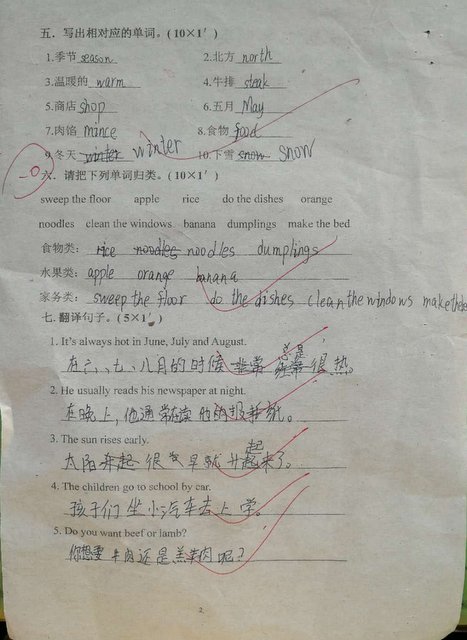 五．写出相对应的单词。(10×1′)
1.季节 season 2.北方 north
3.温暖的 warm 4.牛排 steak
5.商店 shop 6.五月 May
7.肉馅 mince 8.食物 food
9.冬天 winter winter 10.下雪 snow snow
-0
六．请把下列单词归类。(10×1′)
sweep the floor apple rice do the dishes orange
noodles clean the windows banana dumplings make the bed
食物类: rice noodles noodles dumplings
水果类: apple orange banana
家务类: sweep the floor do the dishes clean the windows make the be
七.翻译句子。(5×1′)
1. It's always hot in June, July and August.
在六、七、八月的时候 总是 很热。
2. He usually reads his newspaper at night.
在晚上，他通常在读 报纸。
3. The sun rises early.
太阳 很 早就升起来了。
4. The children go to school by car.
孩子们坐小汽车去上学。
5. Do you want beef or lamb?
你想要牛肉还是羔羊肉呢？
2